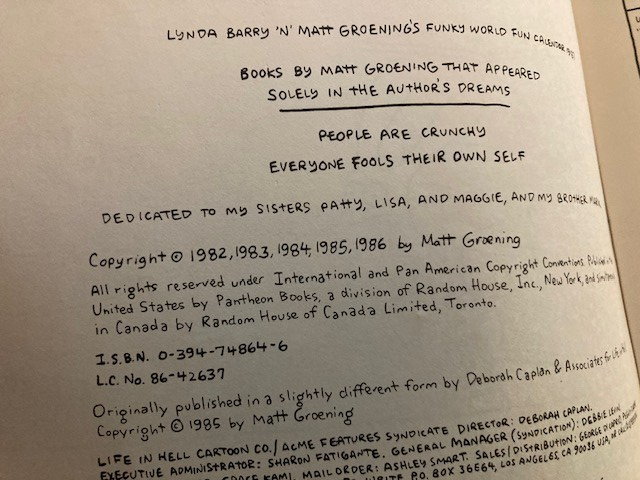 LYNDA BARRY 'N' MATT GROENING'S FUNKY WORLD FUN CALENDAR
BOOKS BY MATT GROENING THAT APPEARED
SOLELY IN THE AUTHOR'S DREAMS
PEOPLE ARE CRUNCHY
EVERYONE FOOLS THEIR OWN SELF
DEDICATED TO MY SISTERS PATTY, LISA, AND MAGGIE, AND MY BROTHER
Copyright © 1982, 1983, 1984, 1985, 1986 by Matt Groening
All rights reserved under International and Pan American Copyright Conventions. Published in
United States by Pantheon Books, a division of Random House, Inc., New York, and
in Canada by Random House of Canada Limited, Toronto.
I.S.B.N. 0-394-74864-6
L.C. No. 86-42637
Originally published in a slightly different form by Deborah Caplan & Associates
Copyright © 1985 by Matt Groening
LIFE IN HELL CARTOON CO./ ACME FEATURES SYNDICATE DIRECTOR: DEBORAH CAPLAN.
EXECUTIVE ADMINISTRATOR: SHARON FATIGANTE. GENERAL MANAGER (SYNDICATION): DEBBIE
KAMI. MAIL ORDER: ASHLEY SMART. SALES/DISTRIBUTION: GEORGE
P.O. BOX 36E64, LOS ANGELES, CA 90036 USA, OR